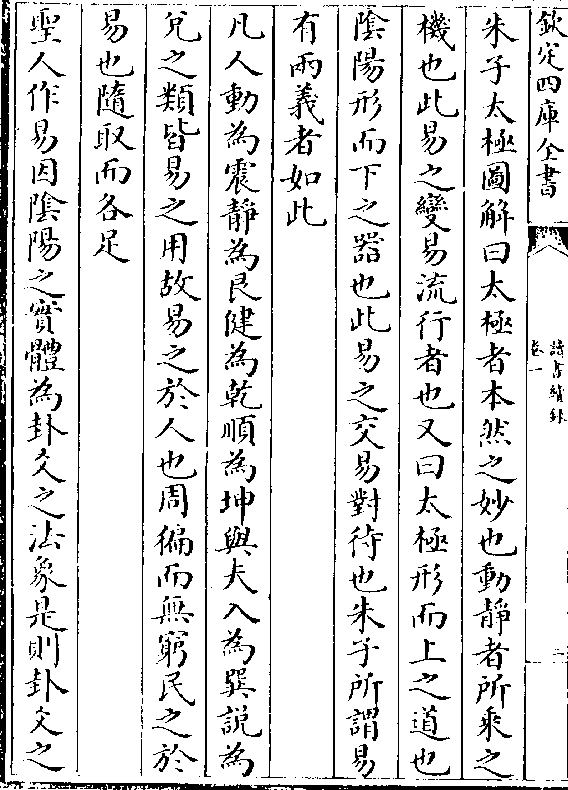 欽定四庫全書
讀書續錄
卷一
二
朱子太極圖解曰太極者本然之妙也動靜者所乘之
機也此易之變易流行者也又曰太極形而上之道也
陰陽形而下之器也此易之交易對待也朱子所謂易
有兩義者如此
凡人動為震靜為艮健為乾順為坤與夫入為巽說為
兌之類皆易之用故易之於人也周徧而無窮民之於
易也隨取而各足
聖人作易因陰陽之實體為卦爻之法象是則卦爻之